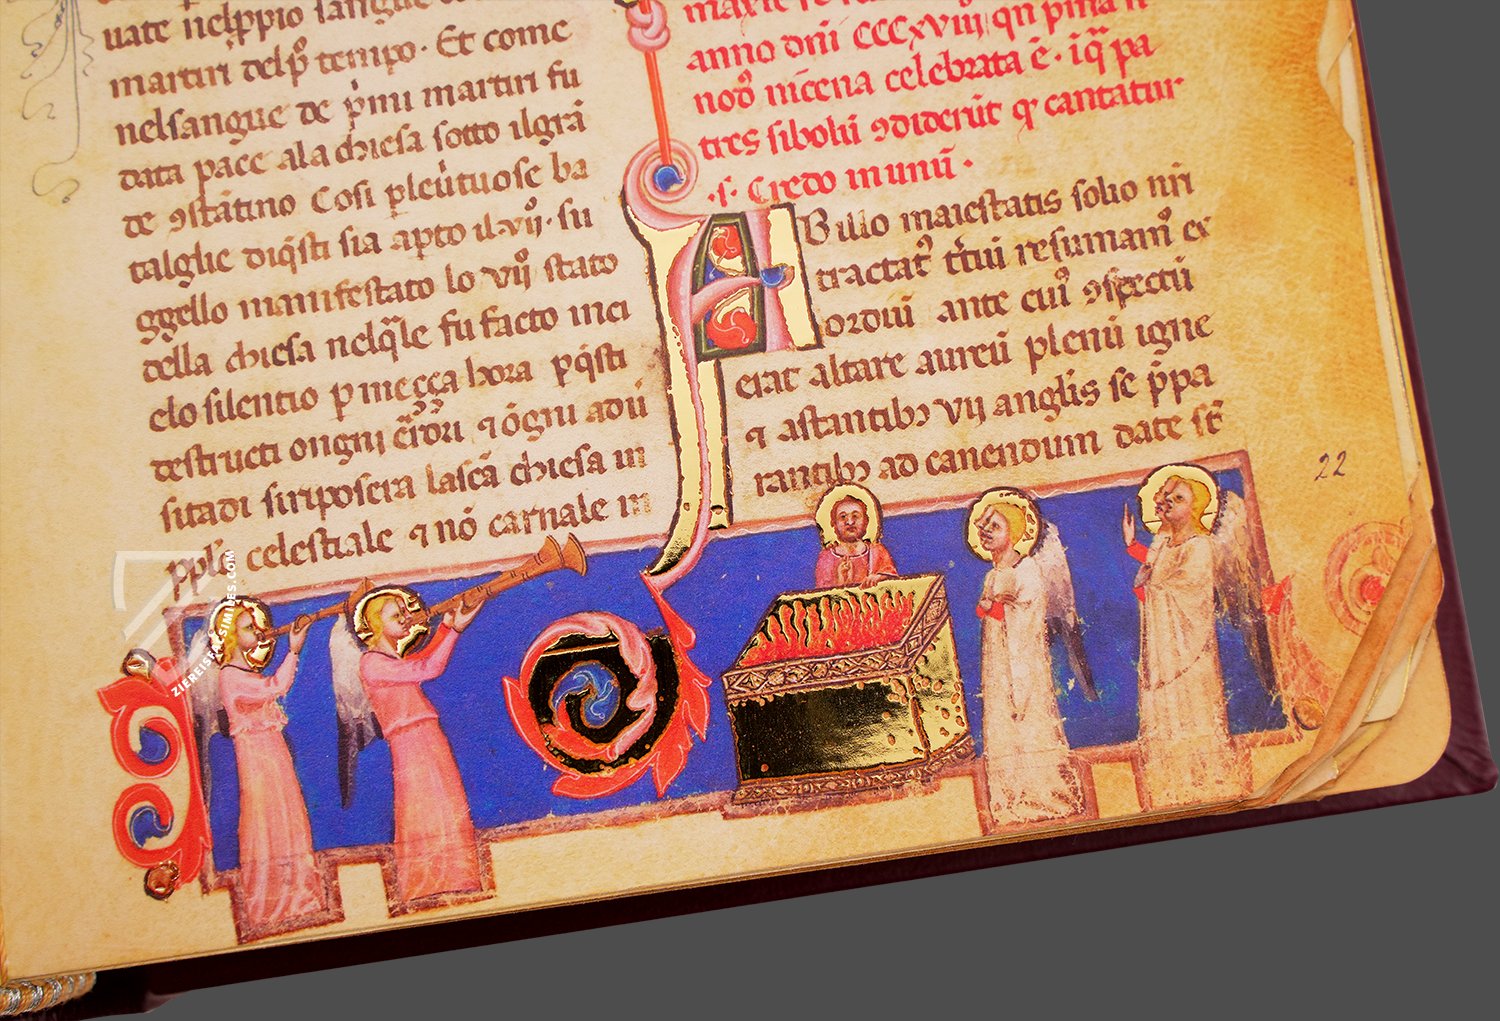 uate nelp̄pio sangue
martiri delp̄ tempo · Et come
nelsangue de p̄mi martiri fu
data pace ala chiesa sotto ilgrā
de 9stātino Cosi pleūtuose ba
talglie diq̄sti sia apto il·vij· su
ggello manifestato lo vijº stato
della chiesa nelq̄le fu facto inci
elo silentio p meçça hora pq̄sti
testructi ongnj ⁊ ōgni adū
sitadi siriposera lascā chiesa in
pplo celestiale ⁊ nō carnale in
anno dñi CCCxviij qñ pma
nodº nicena celebrata ē · iq̄ pa
tres siboliī 9diderūt q cantatur
·s· Credo in unū ·
AB illo maiestatis solio nri
tractatº resumamº ex
ordiū ante cuiº 9spectū
erat altare aureū plenū igne
⁊ astantibꝫ vij anglis se p̄pa
rantibꝫ ad canendum date st̄
22
ZIEREIS FACSIMILES.COM